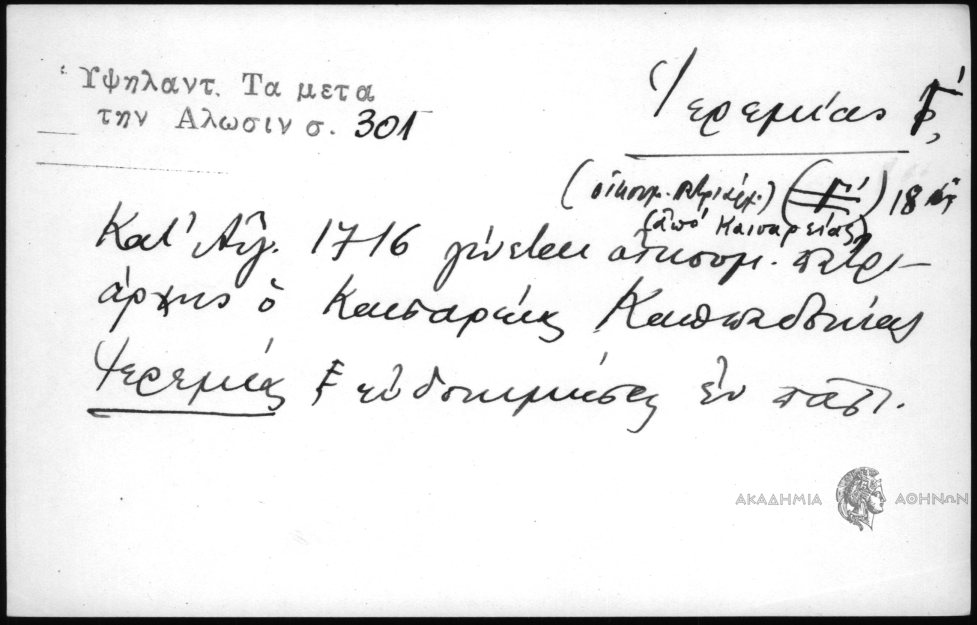 Ὑψηλαντ. Τα μετα
την Αλωσιν σ. 301
Ἱερεμίας Γ΄,
(οἰκουμ. πατριάρχ.) (Γ΄) 18
(ἀπό Καισαρείας)
Κατ' Αὔγ. 1716 γίνεται οἰκουμ. πατρι-
άρχης ὁ Καισαρείας Καππαδοκίας
Ἱερεμίας εὐδοκιμήσας ἐν πᾶσι.
ΑΚΑΔΗΜΙΑ ΑΘΗΝΩΝ